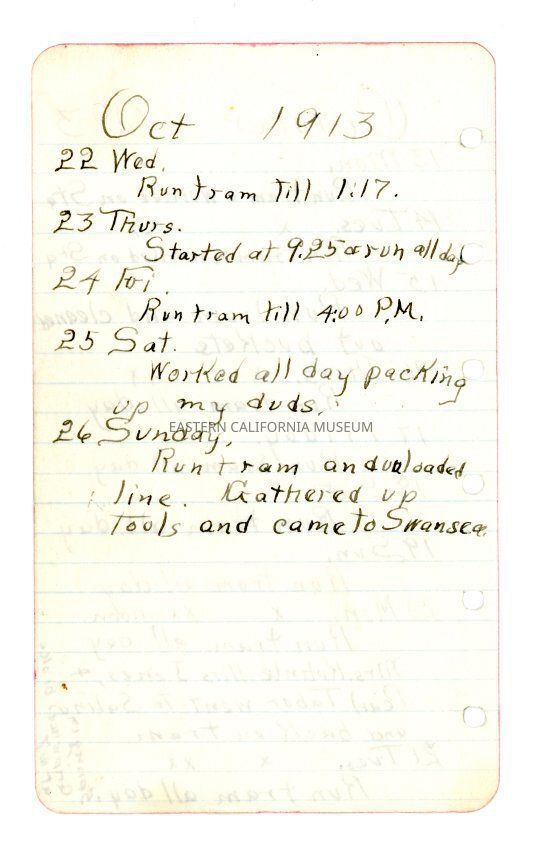 Oct 1913
22 Wed.
Run tram till 1:17.
23 Thurs.
Started at 9.25 & run all day
24 Fri.
Run tram till 4:00 P.M.
25 Sat.
Worked all day packing
up my duds.
EASTERN CALIFORNIA MUSEUM
26 Sunday.
Run tram and unloaded
line. Gathered up
Tools and came to Swansea.